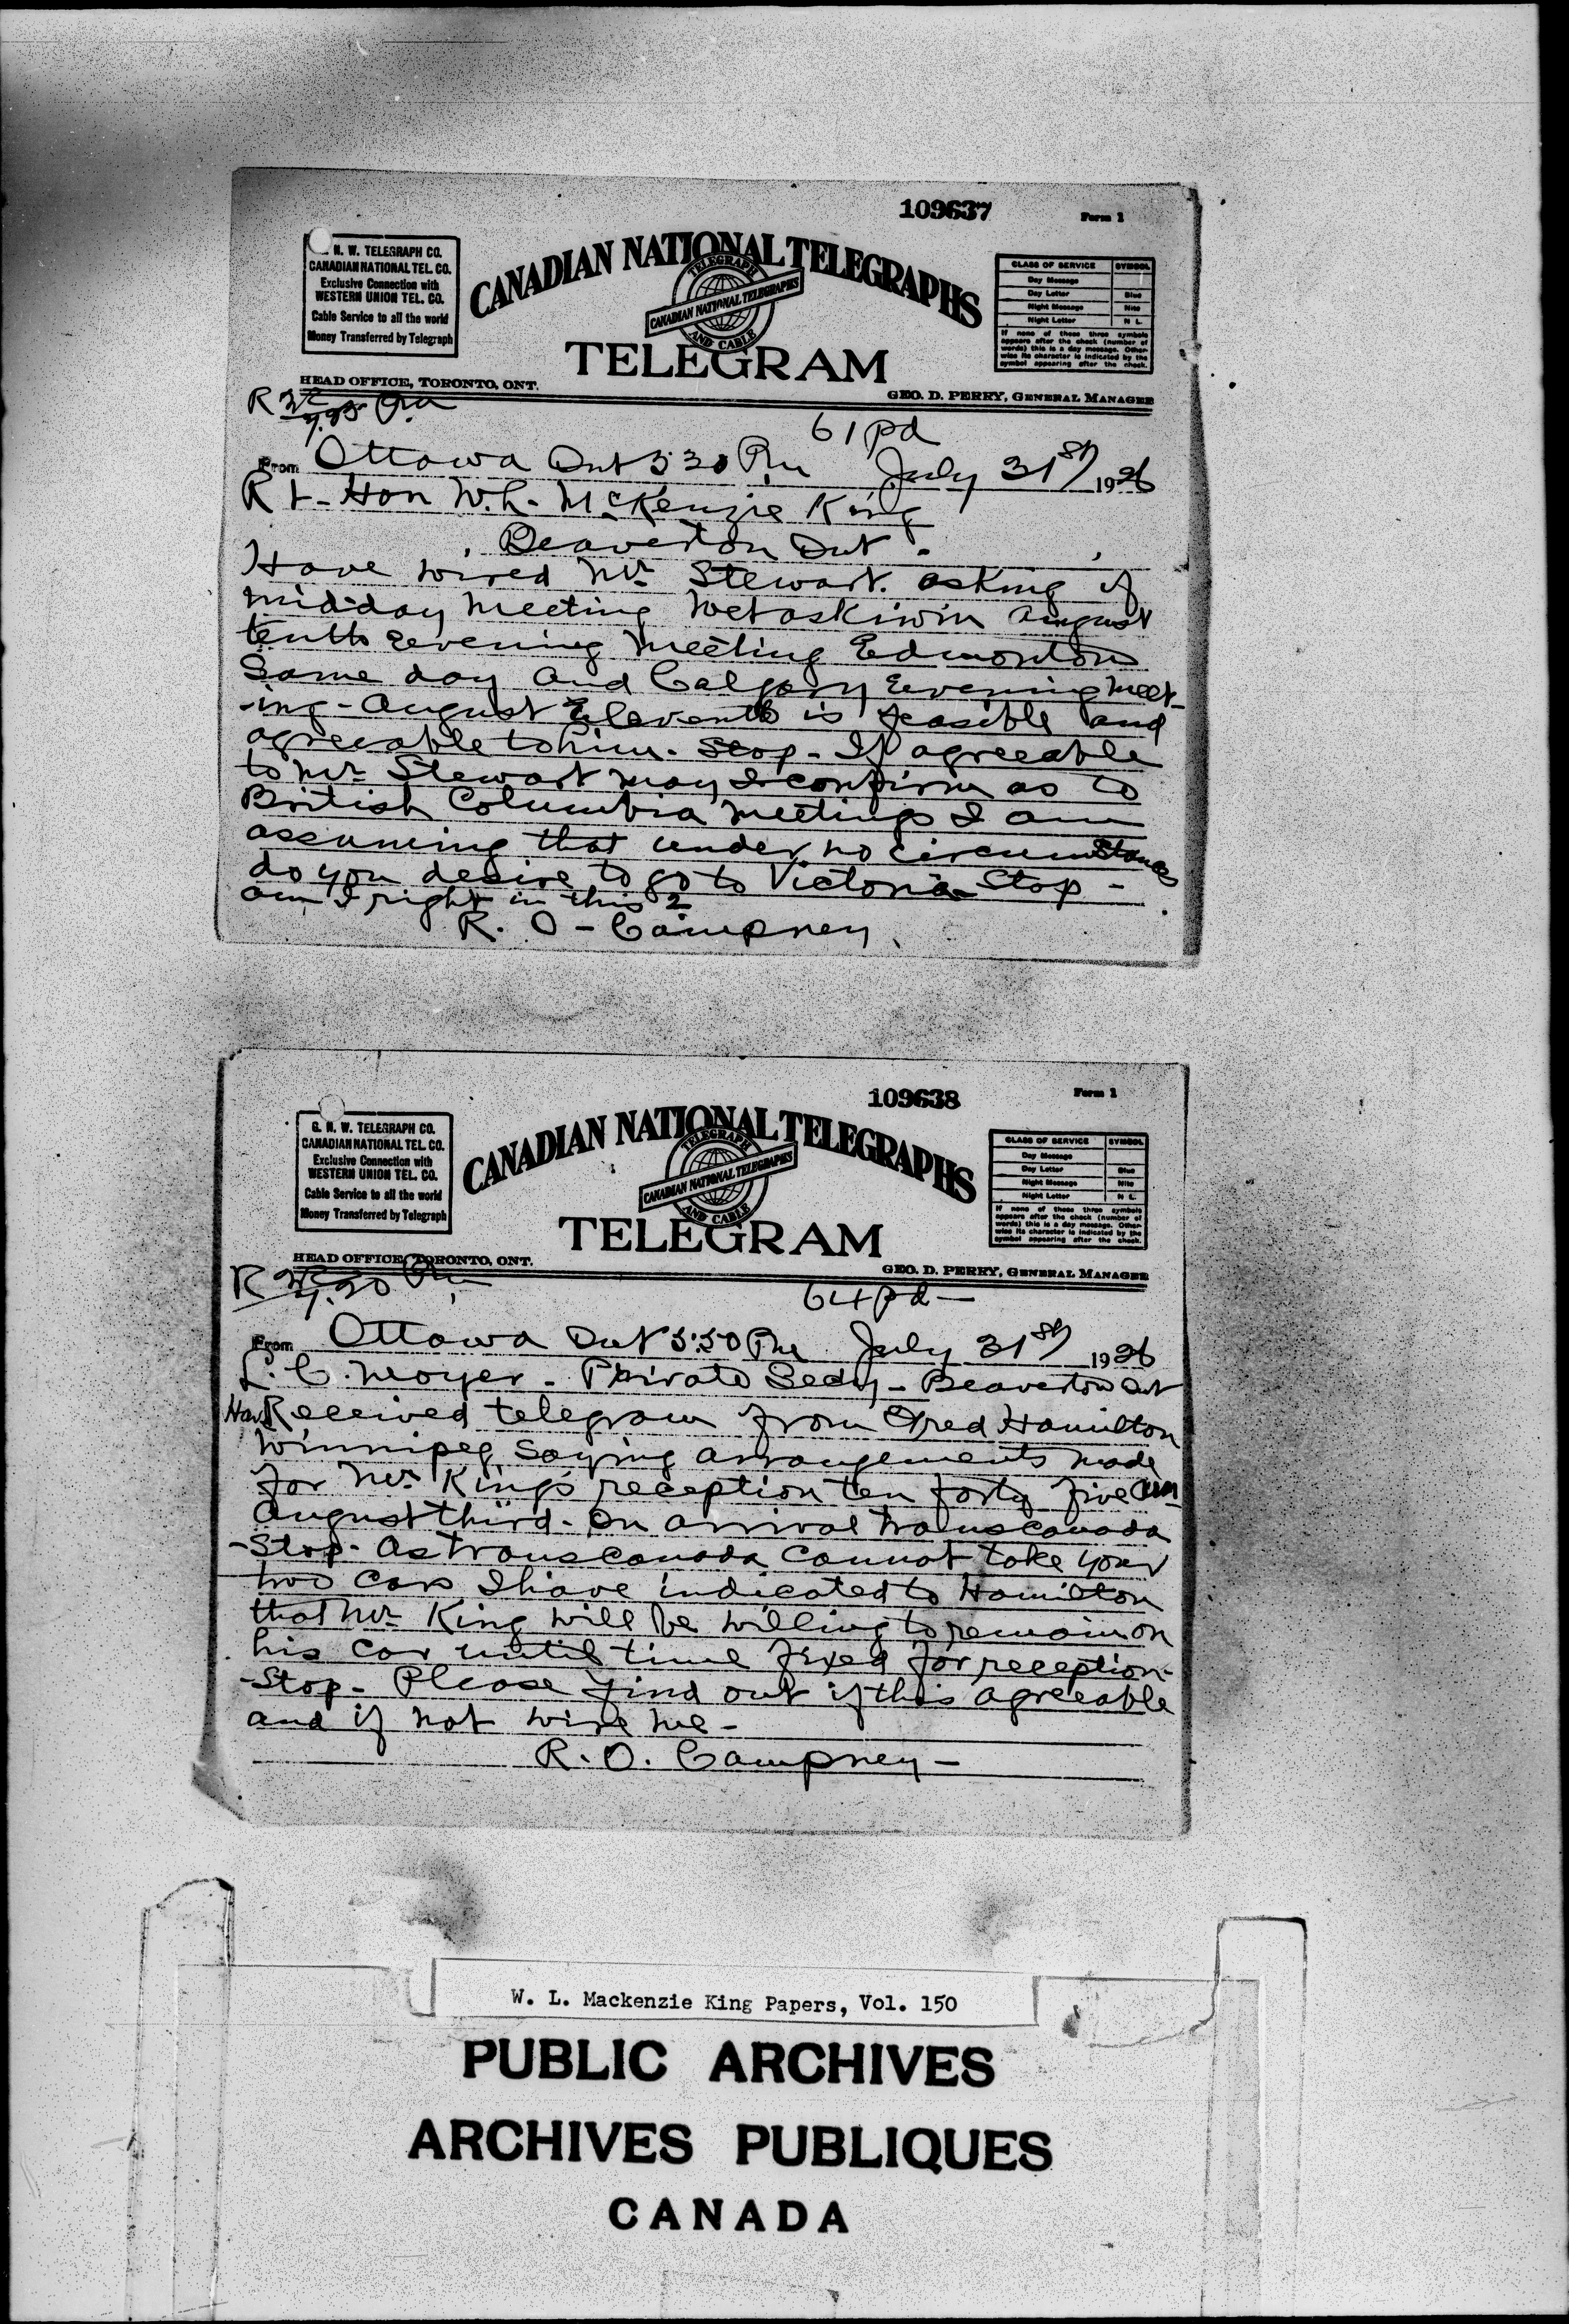 109637
Form 1
N. W. TELEGRAPH CO.
CANADIAN NATIONAL TEL. CO.
Exclusive Connection with
WESTERN UNION TEL. CO.
Cable Service to all the world
Money Transferred by Telegraph
CANADIAN NATIONAL TELEGRAPHS
TELEGRAPH
CANADIAN NATIONAL TELEGRAPHS
AND CABLE
TELEGRAM
CLASS OF SERVICE SYMBOL
Day Message
Day Letter Blue
Night Message Nite
Night Letter N L
If none of these three symbols
appears after the check (number of
words) this is a day message. Other-
wise its character is indicated by the
symbol appearing after the check.
HEAD OFFICE, TORONTO, ONT.
GEO. D. PERRY, GENERAL MANAGER
61 pd
From Ottawa Ont 5 30 Pm July 31st 1926
Rt - Hon W.L. McKenzie King
Beaverton Ont.
Have wired Mr Stewart. asking if
midday meeting Wetaskiwin August
tenth evening meeting Edmonton
same day and Calgary evening meet-
-ing - August Eleventh is feasible and
agreeable to him. Stop - If agreeable
to Mr Stewart may I confirm as to
British Columbia meetings I am
assuming that under no circumstances
do you desire to go to Victoria - Stop -
am I right in this ?
R. O - Campney
109638
Form 1
G. N. W. TELEGRAPH CO.
CANADIAN NATIONAL TEL. CO.
Exclusive Connection with
WESTERN UNION TEL. CO.
Cable Service to all the world
Money Transferred by Telegraph
CANADIAN NATIONAL TELEGRAPHS
TELEGRAPH
CANADIAN NATIONAL TELEGRAPHS
AND CABLE
TELEGRAM
CLASS OF SERVICE SYMBOL
Day Message
Day Letter Blue
Night Message Nite
Night Letter N L
If none of these three symbols
appears after the check (number of
words) this is a day message. Other-
wise its character is indicated by the
symbol appearing after the check.
HEAD OFFICE, TORONTO, ONT.
GEO. D. PERRY, GENERAL MANAGER
64 pd -
From Ottawa Ont 5:50 Pm July 31st 1926
L. C. Moyer - Private Secty - Beaverton Ont
Have Received telegram from Fred Hamilton
Winnipeg saying arrangements made
for Mr. King's reception ten forty five am
August third - On arrival transcanada
- Stop - As transcanada cannot take your
two cars I have indicated to Hamilton
that Mr King will be willing to remain on
his car until time fixed for reception -
- Stop - Please find out if this agreeable
and if not wire me -
R. O. Campney -
W. L. Mackenzie King Papers, Vol. 150
PUBLIC ARCHIVES
ARCHIVES PUBLIQUES
CANADA